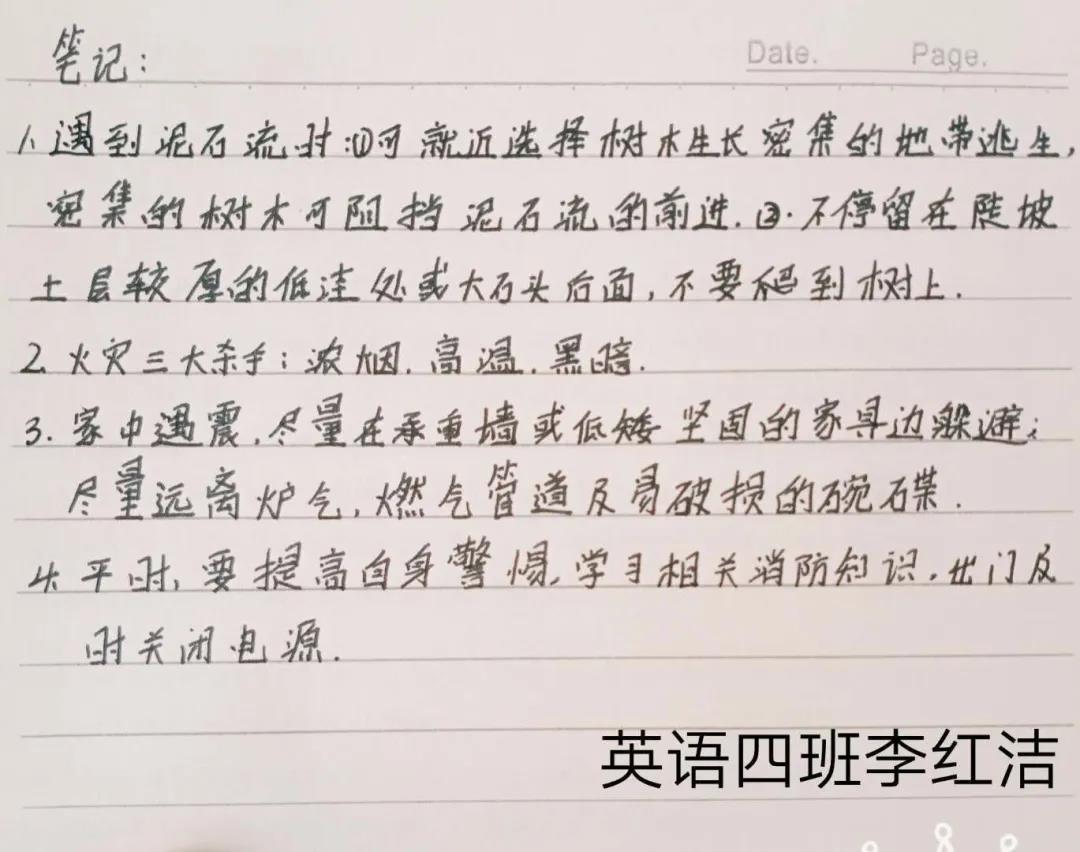 Date. Page.
笔记:
1.遇到泥石流时:①可就近选择树木生长密集的地带逃生,
密集的树木可阻挡泥石流的前进.②.不停留在陡坡
土层较厚的低洼处或大石头后面,不要爬到树上.
2.火灾三大杀手:浓烟.高温.黑暗.
3.家中遇震,尽量在承重墙或低矮坚固的家具边躲避;
尽量远离炉气,燃气管道及易破损的碗碟.
4.平时,要提高自身警惕,学习相关消防知识.出门及
时关闭电源.
英语四班李红洁